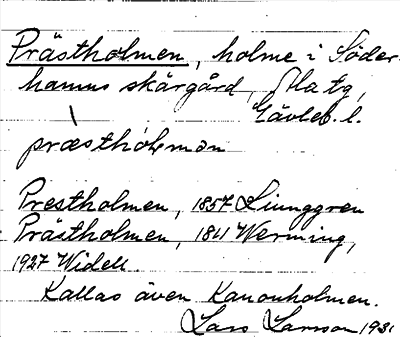 Prästholmen, holme i Söder-
hamns skärgård,
Gävleb. l.
præsthólmɘn
Prestholmen, 1857 Ljunggren
Prästholmen, 1841 Werming,
1927 Widell.
Kallas även Kanonholmen.
Lars Larsson 1931